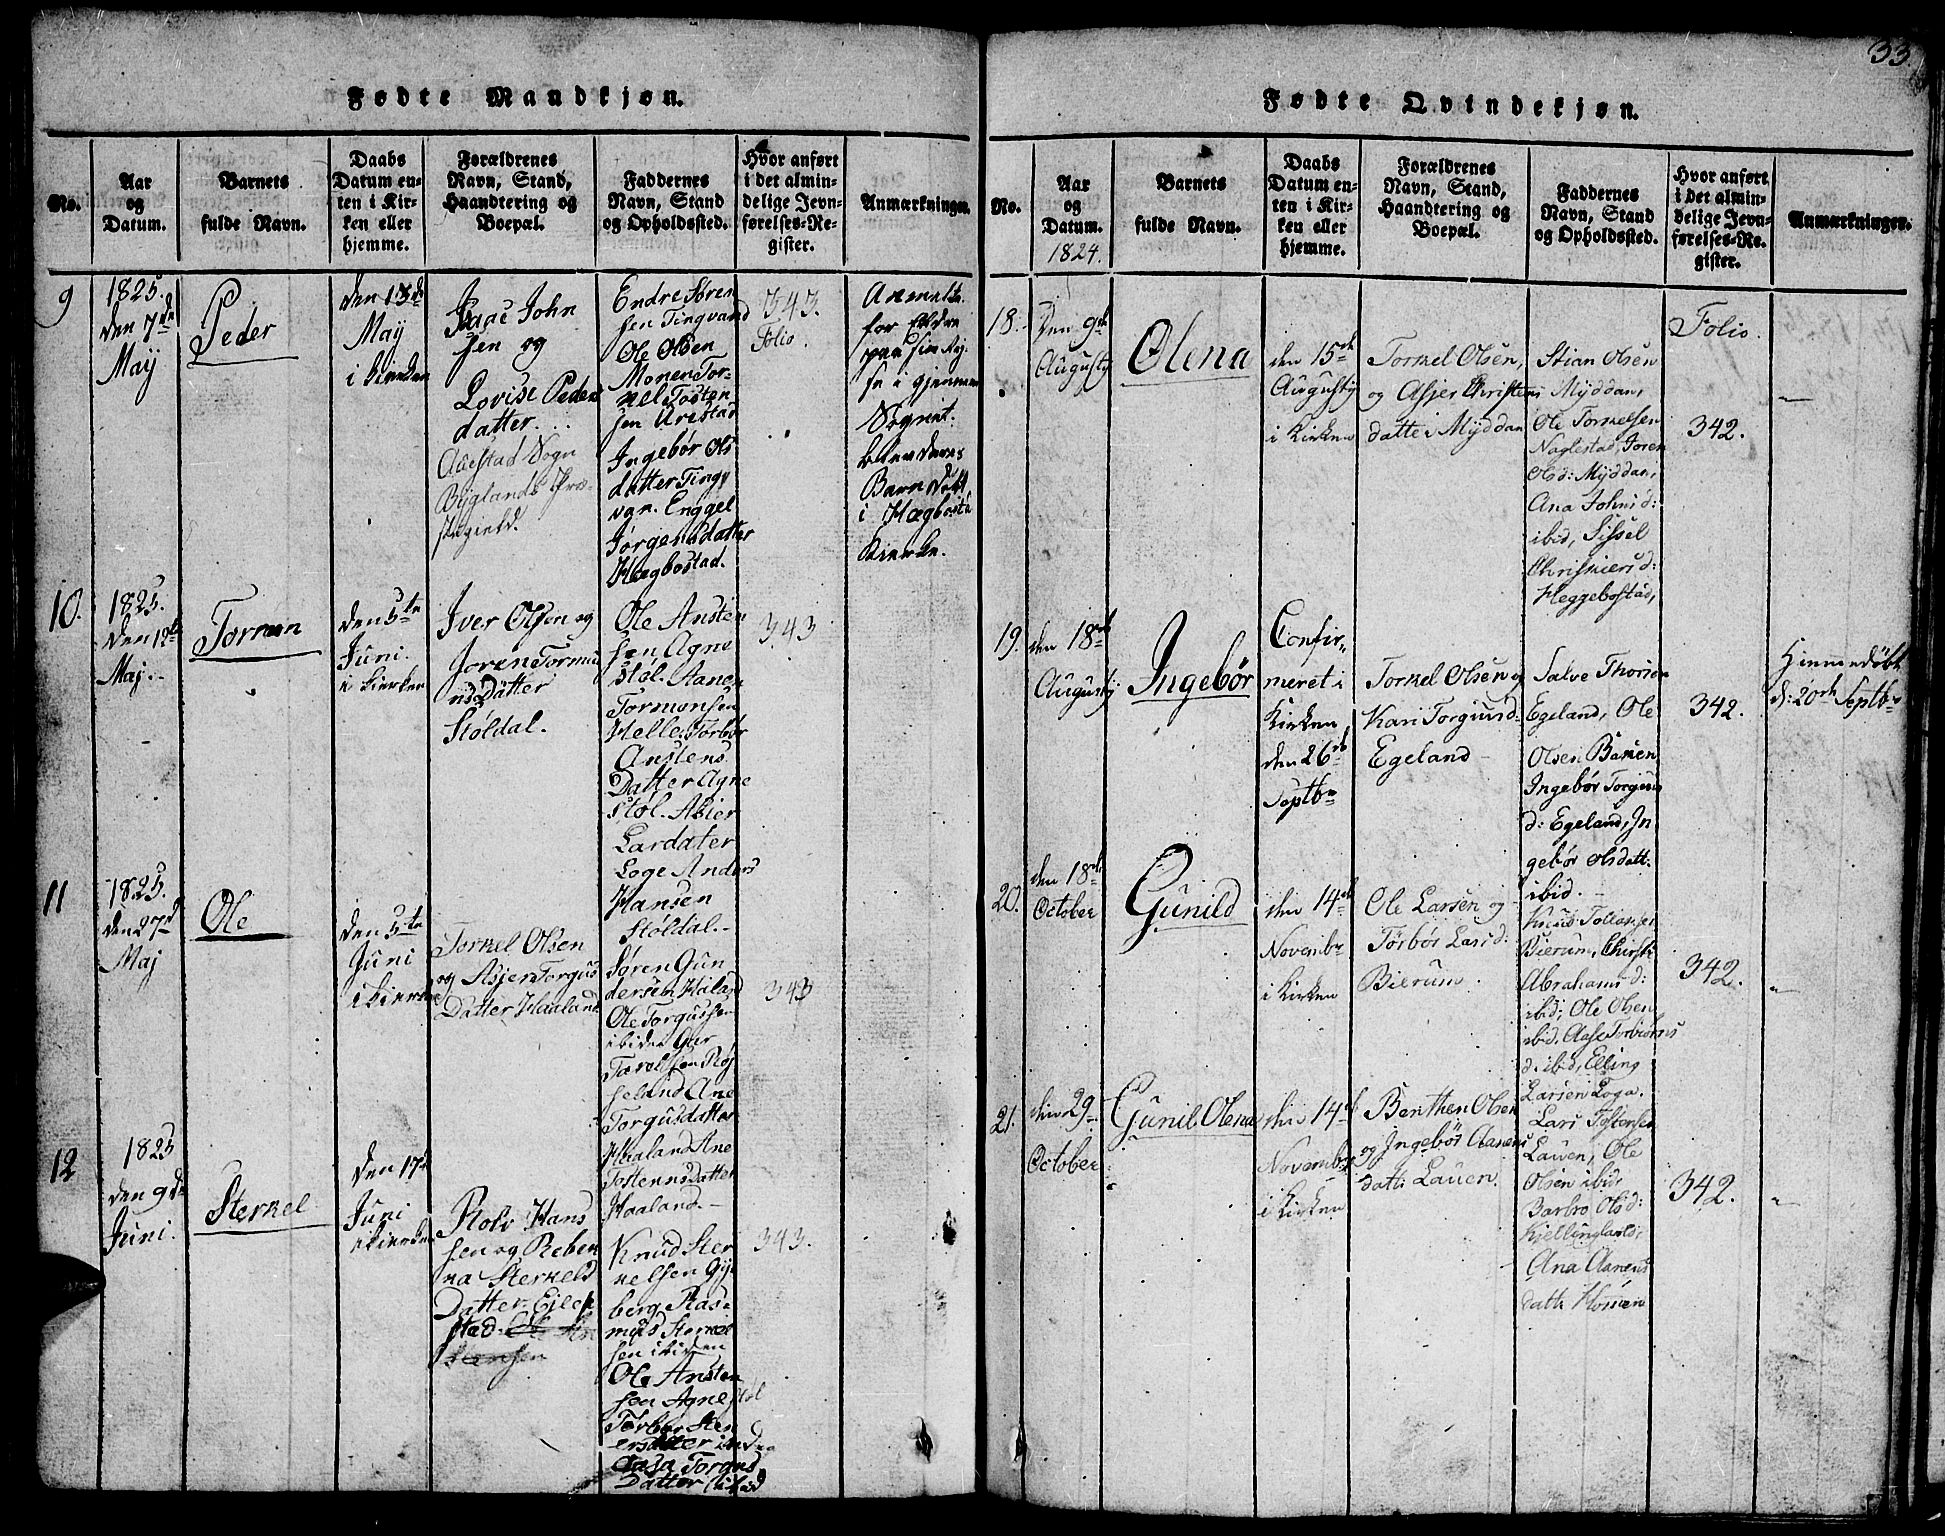 33.
Fødte Mandkjøn.
No.
Aar
og
Datum.
Barnets
fulde Navn.
Daabs
Datum en-
ten i Kir-
ken eller
hjemme.
Forældrenes
Navn, Stand,
Haandtering og
Boepæl.
Faddernes
Navn, Stand
og Opholdssted.
Hvor anført
i det almin-
delige Jevn-
førelses-Re-
gister.
Anmærkninger.
9
1825.
den 7de
Maÿ
Peder
den 13de
Maÿ
i kierken
Isaac John
sen og
Lovise Peders
datter
Sogn
Bÿglands Præ-
stegield.
Endre Søren
sen Tingvand
Ole Olsen
Monen Tor-
kel Tosten
sen
Ingebør Ols
datter Ting
van. Enggel
Jørgensdatter
Hægbostad.
343.
Folio.
Anmelte
for
paa sin Reÿ-
se i gjennem
Sognet.
blev deres
Barn Døbt
i Hægbosta
Kierke.
10.
1825.
den 12te
Maj.
Tormun
den 5te
Juni.
i kierken
Iver Olsen og
Joren Tormu
nsDatter
Støldal.
Ole Ansten
sen Agne
støl. Aanen
Tormonsen
Helle. Torbør
Anstens
Datter Agne
støl. Asier
Lardater
Loge Anders
Hansen
Støldal.
343
11
1825.
den 27d
Maj
Ole
den 5te
Juni
i kierken
Torkel Olsen
og Asjer Torgus
Datter Haaland
Søren Gun
dersen Haland
Ole Torgussen
ibiden
Tarelsen Røj
seland Ane
Torgusdatter
Haaland Ane
TostensDatter
Haaland.
343
12
1825
den 9de
Juni.
Sterkel
den 17de
Juni
i kierken
Rolv Hans
sen og Reben
ka Sterkels
Datter. Eilep
stad.
Knud Ster
kelsen Gÿ
berg, Ras-
mus Sterkel
sen ibiden
Ole Ansten
sen Agnestøl
Torbør Sten
ersdatter
Aasa Torgus
Datter ibid
343.
Fødte Qvindekjøn.
No.
Aar
og
Datum.
1824.
Barnets
fulde Navn.
Daabs
Datum en-
ten i Kir-
ken eller
hjemme.
Forældrenes
Navn, Stand,
Haandtering og
Boepæl.
Faddernes
Navn, Stand
og Opholdssted.
Hvor anført
i det almin-
delige Jevn-
førelses-Re-
gister.
Anmærkninger.
18.
Den 9de
Augustÿ
Olena
den 15de
Augustÿ
i Kirken
Torkel Olsen,
og Asjer Christens
datte i Mÿddan
Stian Olsen
Mÿddan,
Ole Torkelsen
Naglestad, Joren
Olsd: Mÿddan,
Ana Johnsd:
ibid, Sissel
Heggebostad,
Folio.
342.
19.
den 18de
Augustÿ
Ingebør
Confir-
meret i
Kirken
den 26de
Septbr
Torkel Olsen og
Kari Torgiusd:
Egeland
Salve Thorsen
Egeland, Ole
Olsen Barken
Ingebør Torgius
d: Egeland, In
gebør Olsdatt:
ibid.
342.
Hiemmedøbt
d: 20de Septbr
20.
den 18de
October
Gunild
den 14de
Novembr
i Kirken
Ole Larsen og
Torbør Larsd:
Bierum.
Knud
Bierum, Christi
Abrahamsd:
ibid; Ole Olsen
ibid, Aase Torbiørns
d: ibid, Elling
Larsen Loga.
342.
21.
den 29
October
Gunil Olena
den 14de
Novembr
i Kirken
Benthen Olsen
og Ingebør Aanens
datt: Lauen.
Lars Tostensen
Lauen, Ole
Olsen ibid,
Barbro Olsd:
Kjellingland,
Ana Aanens
datt:
342.